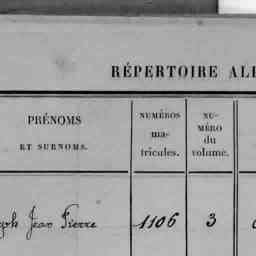 RÉPERTOIRE AL
PRÉNOMS
ET SURNOMS.
NUMÉROS
ma-
tricules.
NU-
MÉRO
du
volume.
Jean Pierre 1106 3